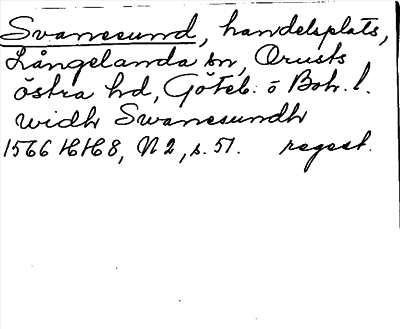 Svanesund, handelsplats,
Långelanda sn, Orusts
östra hd, Göteb. o Boh. l.
widh Swanesundh
1566 HH8, N 2, s. 51. regest.